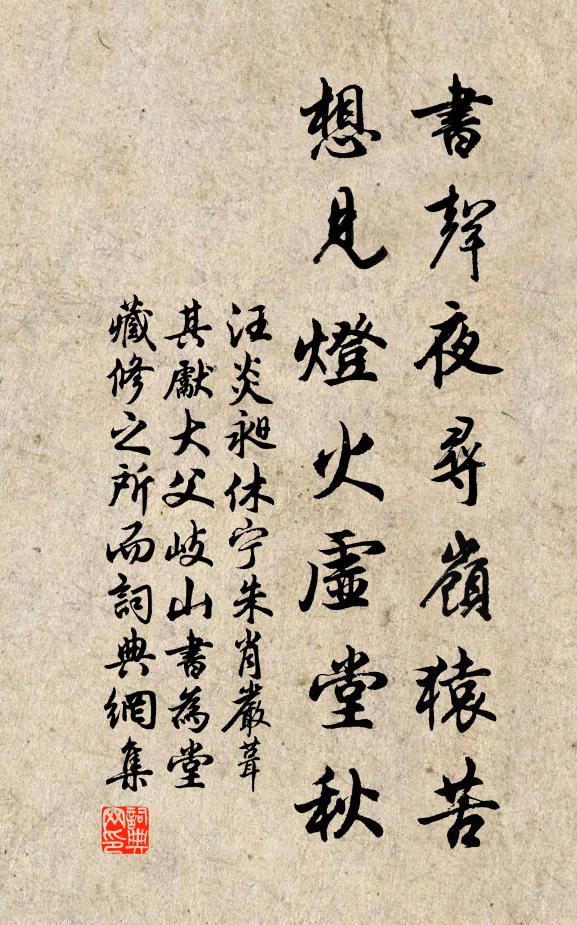 書聲夜尋嶺猿苦
想見燈火虛堂秋
汪炎昶休宁朱肖嚴葺
其厭大父岐山書為堂
藏修之所而詞典網集
詞典网印